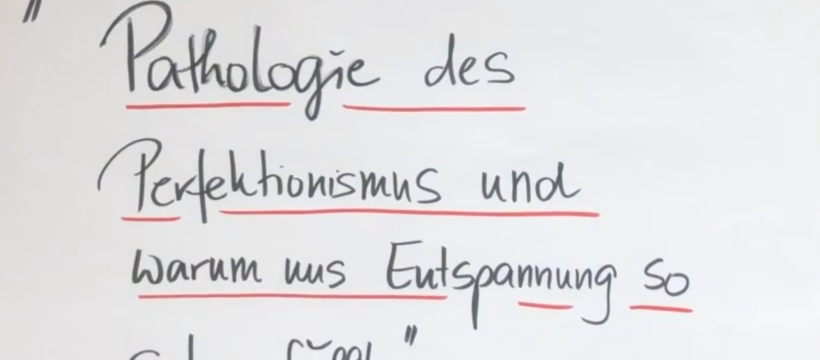 "Pathologie des
Perfektionismus und
warum uns Entspannung so
"